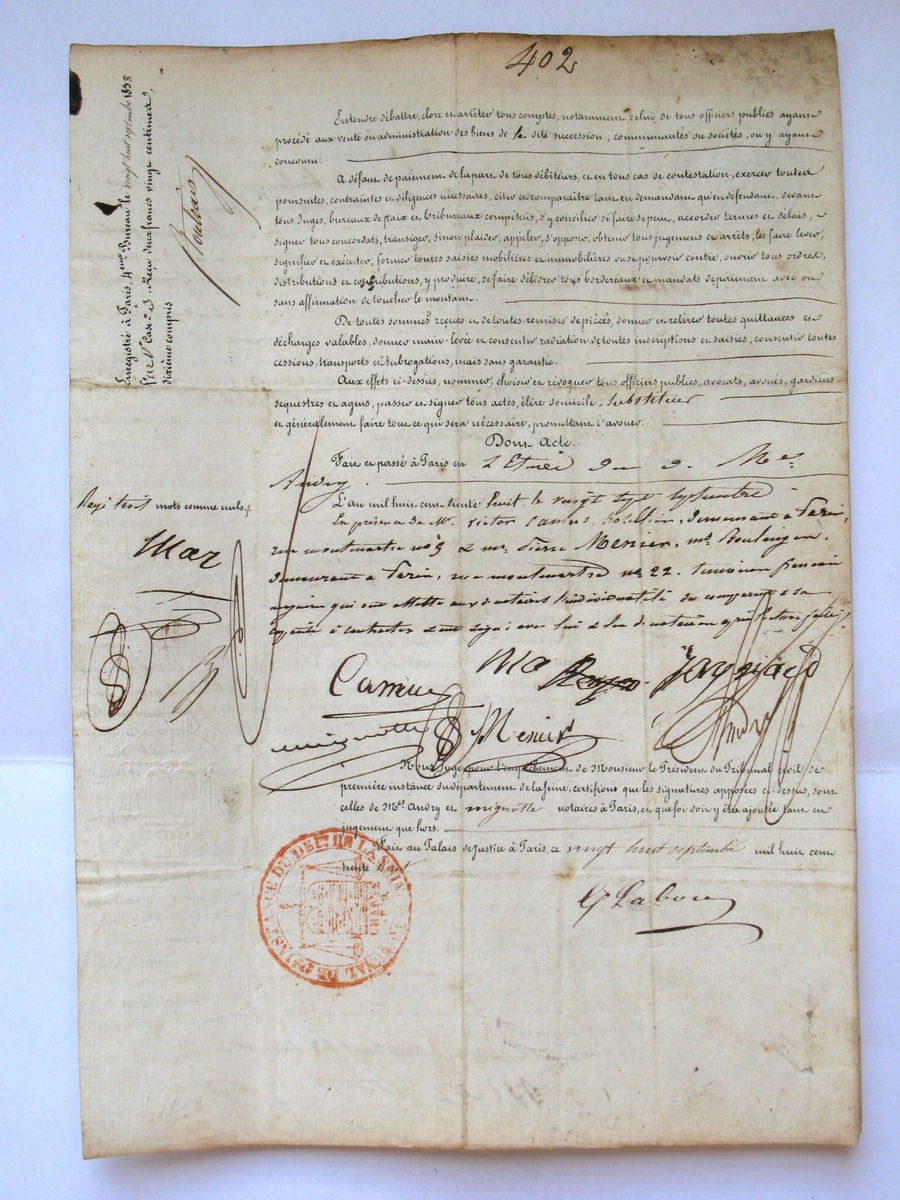 402
Enregistré à Paris, 4eme Bureau le vingt huit septembre 1838
Reçu deux francs vingt centimes,
dixième compris
Entendre débattre, clore et arrêter tous comptes, notamment celui de tous officiers publics ayant
procédé aux vente ou administration des biens de la dite succession, communautés ou sociétés, ou y ayant
concouru
A défaut de paiement de la part de tous débiteurs, et en tous cas de contestation, exercer toutes
poursuites, contraintes et diligences nécessaires, citer et comparaître tant en demandant qu'en défendant, devant
tous Juges, bureaux de paix et tribunaux compétens, s'y concilier si faire se peut, accorder termes et délais,
signer tous concordats, transiger, sinon plaider, appeler, s'opposer, obtenir tous jugemens et arrêts, les faire lever,
signifier et exécuter, former toutes saisies mobilières et immobilières ou se pourvoir contre, ouvrir tous ordres,
distributions et contributions, y produire, se faire délivrer tous bordereaux et mandats de paiement avec ou
sans affirmation de toucher le montant.
De toutes sommes reçues et de toutes remises de pièces, donner et retirer toutes quittances et
décharges valables, donner main-levée et consentir radiation de toutes inscriptions et saisies, consentir toutes
cessions, transports et subrogations, mais sans garantie.
Aux effets ci-dessus, nommer, choisir et révoquer tous officiers publics, avocats, avoués, gardiens
sequestres et agens, passer et signer tous actes, élire domicile, substituer
et généralement faire tout ce qui sera nécessaire, promettant l'avouer.
Dont Acte.
Fait et passé à Paris en l'Etude du d. Me.
Andry.
L'an mil huit cent trente huit le vingt sept septembre
En présence de Mr. Victor Camus, demeurant à Paris,
rue montmartre no 5 & Mr. Pierre Menier, md Boulanger.
demeurant à Paris, rue montmartre no 22. témoins
Rayé trois mots comme nuls.
Mar
Camus
Menier
Andry
mignotte
Nous Juge pour l'empêchement de Monsieur le Président du Tribunal civil de
première instance du département de la Seine, certifions que les signatures apposées ci-dessus, sont
celles de Mes. Andry et mignotte notaires à Paris, et que foi doit y être ajoutée tant en
jugement que hors.
Fait au Palais de Justice à Paris, ce vingt huit septembre mil huit cent
trente huit
TRIBUNAL DE 1ERE INSTANCE DU DEPT DE LA SEINE